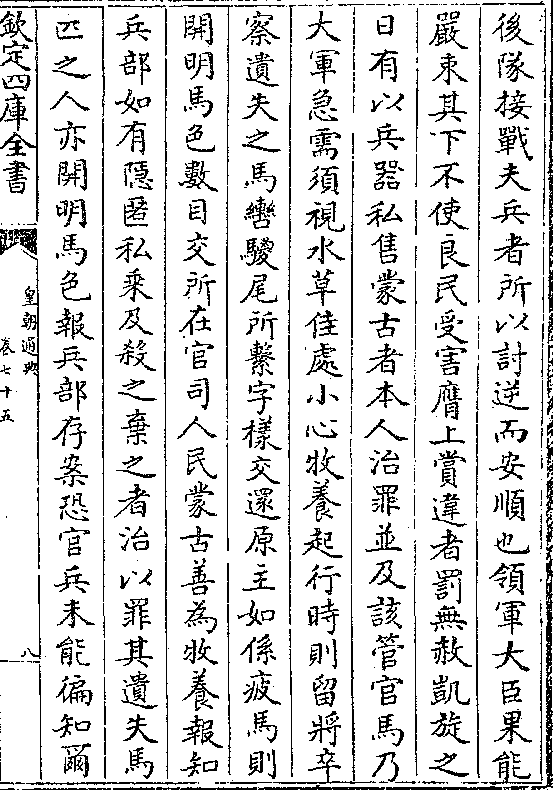 後隊接戰夫兵者所以討逆而安順也領軍大臣果能
嚴束其下不使良民受害膺上賞違者罰無赦凱旋之
日有以兵器私售蒙古者本人治罪並及該管官馬乃
大軍急需須視水草佳處小心牧養起行時則留將卒
察遺失之馬轡騣尾所繫字樣交還原主如係疲馬則
開明馬色數目交所在官司人民蒙古善為牧養報知
兵部如有隱匿私乘及殺之棄之者治以罪其遺失馬
匹之人亦開明馬色報兵部存案恐官兵未能徧知爾
欽定四庫全書
皇朝通典
卷七十五
八